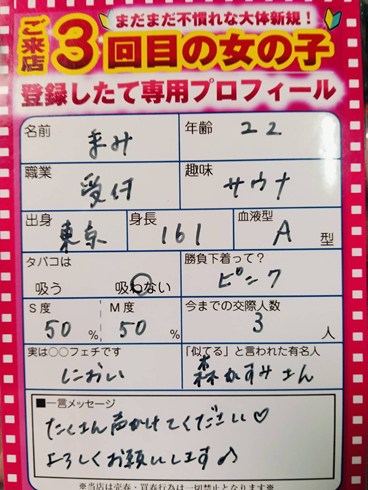 まだまだ不慣れな大体新規！
ご来店3回目の女の子
登録したて専用プロフィール
名前 まみ 年齢 22
職業 受付 趣味 サウナ
出身 東京 身長 161 血液型 A 型
タバコは 勝負下着って？
吸う 吸わない ピンク
S度 M度 今までの交際人数
50 % 50 % 3 人
実は○○フェチです 「似てる」と言われた有名人
におい 森かすみさん
■一言メッセージ
たくさん声かけてください♡
よろしくお願いします♪
※当店は売春・買春行為は一切禁止となります※